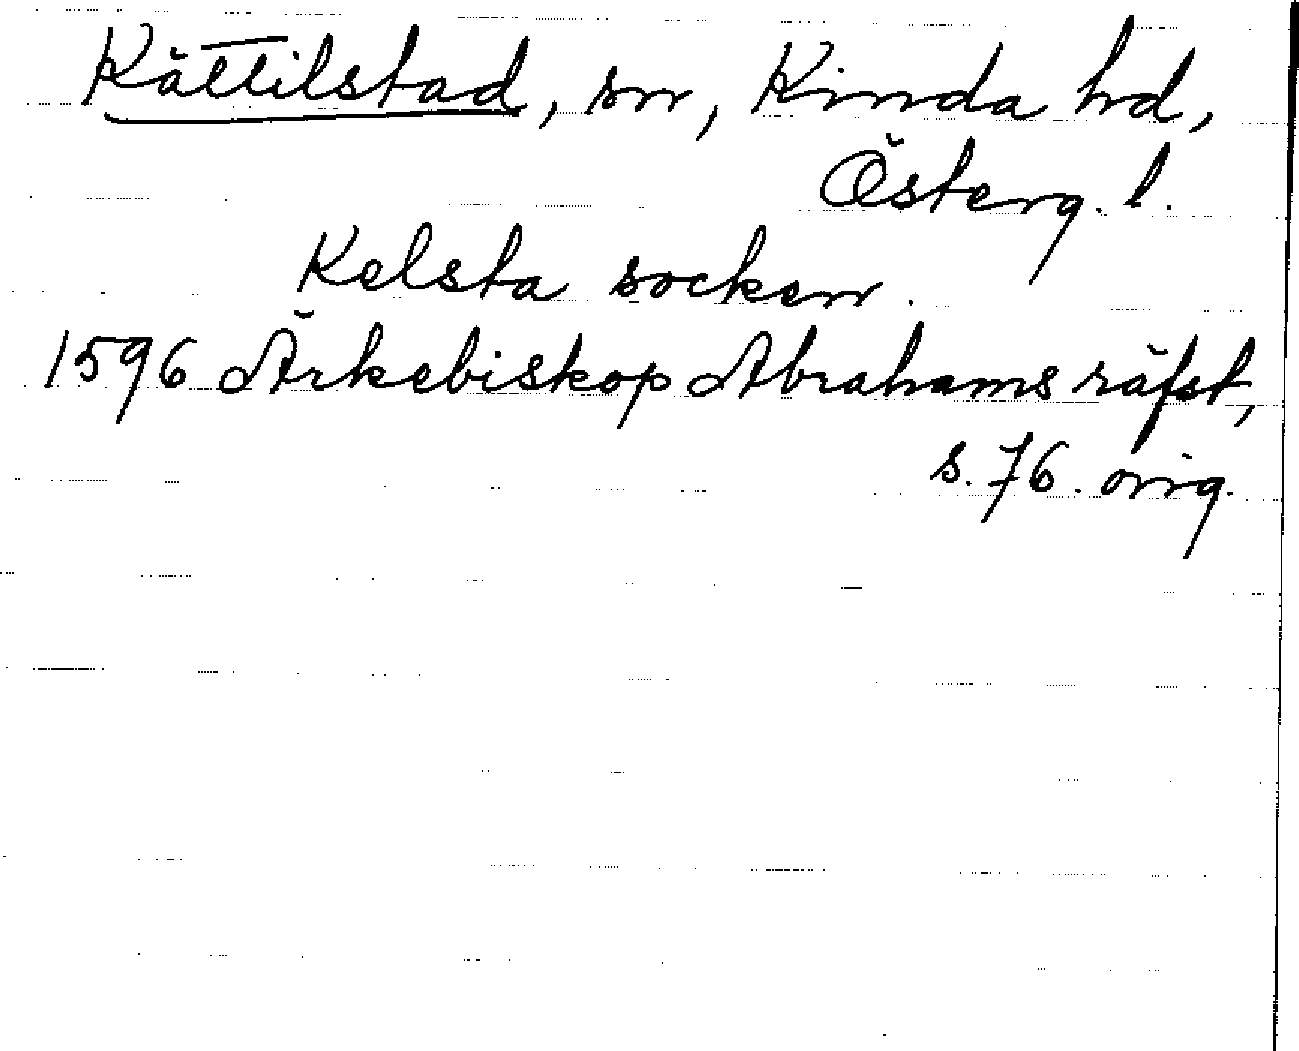 Kättilstad, sn, Kinda hd,
Österg. l.
Kelsta socken.
1596 Ärkebiskop Abrahams räfst,
s. 76. orig.